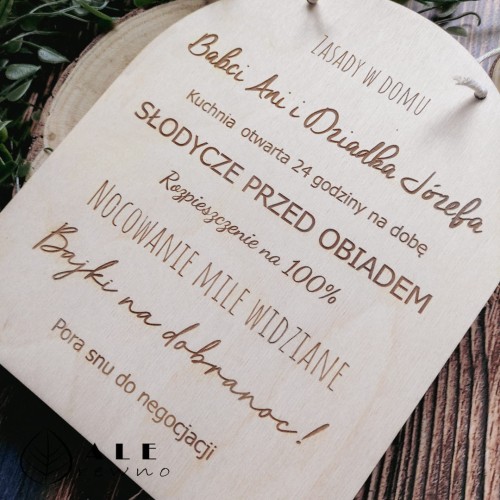 ZASADY W DOMU
Babci Ani i Dziadka Józefa
Kuchnia otwarta 24 godziny na dobę
SŁODYCZE PRZED OBIADEM
Rozpieszczenie na 100%
NOCOWANIE MILE WIDZIANE
Bajki na dobranoc!
Pora snu do negocjacji
ALE